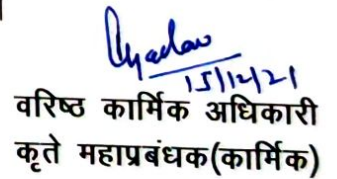 15/12/21
वरिष्ठ कार्मिक अधिकारी
कृते महाप्रबंधक(कार्मिक)